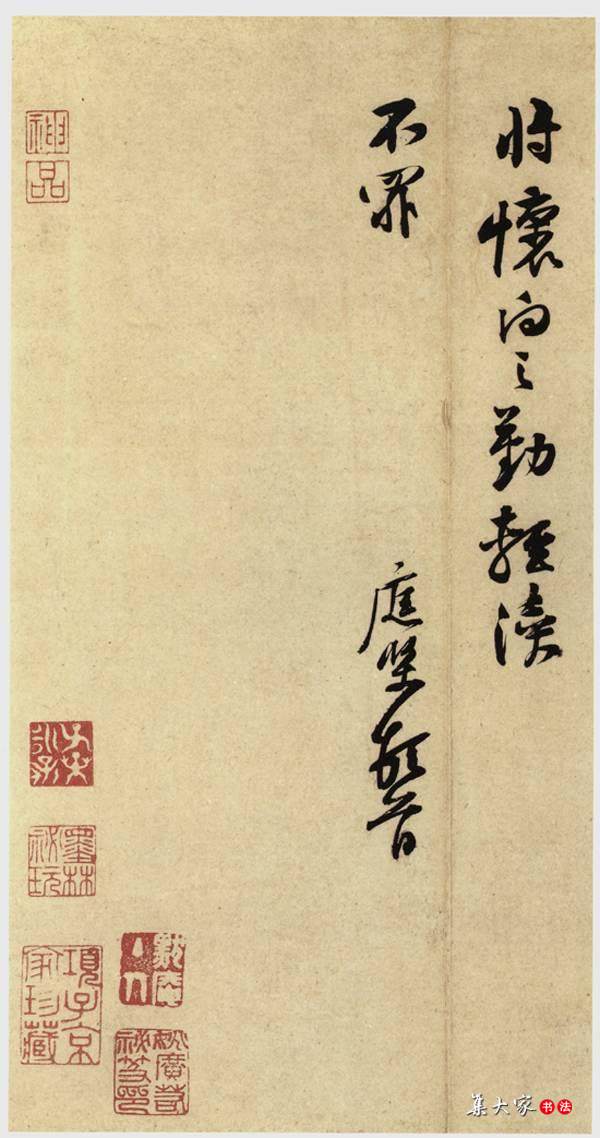 将懷向之勤輕瀆
不罪
庭堅頓首
神品
墨林祕玩
項子京家珍藏
集大家书法